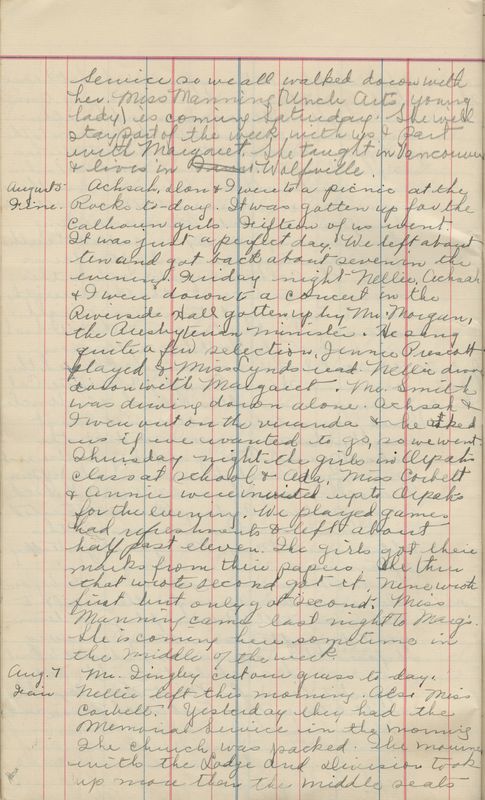 Service so we all walked down with
her. Miss Manning (Uncle Art's young
lady) is coming Saturday. She will
stay part of the week with us & part
with Margaret. She taught in Vancouver
& lives in Wolfville.
August 5 Achsah, Alon & I went to a picnic at the
Fine. Rocks to-day. It was gotten up for the
Calhoun girls. Fifteen of us went.
It was just a perfect day. We left about
ten and got back about seven in the
evening. Friday night Nellie, Achsah
& I went down to a concert in the
Riverside Hall gotten up by Mr. Morgan,
the Presbyterian minister. He sang
quite a few selection, Jennie Prescott
played & Miss Lynds read. Nellie drove
down with Margaret. Mr. Smith
was driving down alone. Achsah &
I were out on the veranda & he asked
us if we wanted to go, so we went.
Thursday night the girls in
class at school & Ada, Miss Corbett
& Annie were invited up to
for the evening. We played games
had refreshments & left about
half past eleven. The girls got their
marks from their papers. The three
that wrote second got it, nine wrote
first but only got second. Miss
Manning came last night to Marg's.
She is coming here sometime in
the middle of the week.
Aug. 7 Mr. Tingley cut our grass to-day.
Nellie left this morning. Also Miss
Corbett. Yesterday they had the
Memorial Service in the morning
The church was packed. The
with the Lodge and Division took
up more than the middle seats